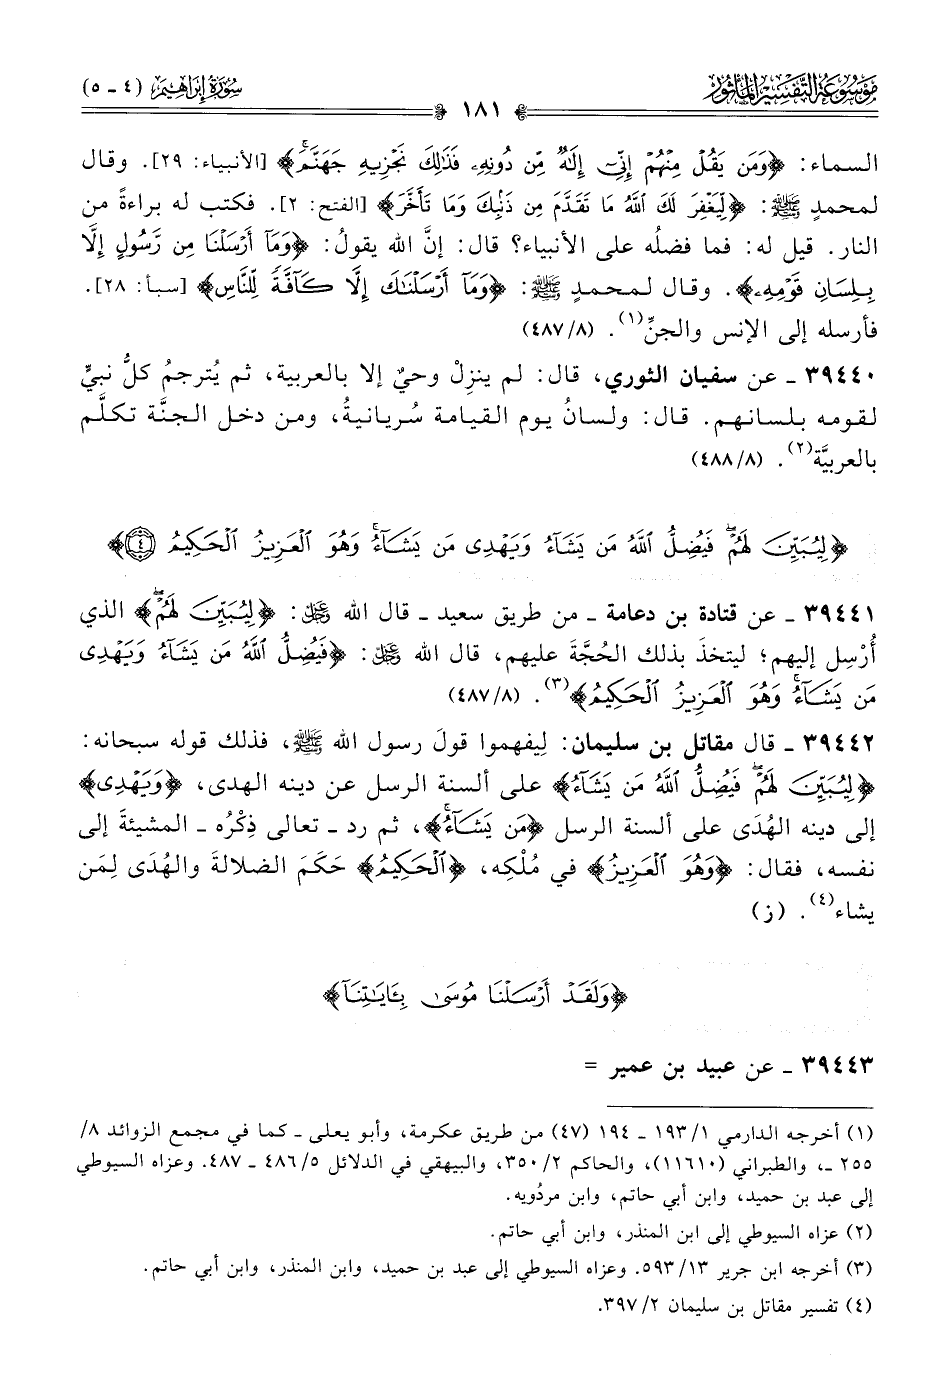 مَوْسُوعَة التَّفْسِير المَأْثُور
١٨١
سُورَةُ إِبْرَاهِيمَ (٤ - ٥)
السماء: ﴿وَمَن يَقُلْ مِنْهُمْ إِنِّي إِلَٰهٌ مِّن دُونِهِۦ فَذَٰلِكَ نَجْزِيهِ جَهَنَّمَ﴾ [الأنبياء: ٢٩]. وقال
لمحمدٍ ﷺ: ﴿لِّيَغْفِرَ لَكَ ٱللَّهُ مَا تَقَدَّمَ مِن ذَنۢبِكَ وَمَا تَأَخَّرَ﴾ [الفتح: ٢]. فكتب له براءةً من
النار. قيل له: فما فضلُه على الأنبياء؟ قال: إنَّ الله يقولُ: ﴿وَمَآ أَرْسَلْنَا مِن رَّسُولٍ إِلَّا
بِلِسَانِ قَوْمِهِۦ﴾. وقال لمحمدٍ ﷺ: ﴿وَمَآ أَرْسَلْنَٰكَ إِلَّا كَآفَّةً لِّلنَّاسِ﴾ [سبأ: ٢٨].
فأرسله إلى الإنس والجنِّ(١). (٤٨٧/٨)
٣٩٤٤٠ ـ عن سفيان الثوري، قال: لم ينزِلْ وحيٌ إلا بالعربية، ثم يُترجمُ كلُّ نبيٍّ
لقومه بلسانهم. قال: ولسانُ يوم القيامة سُريانيةُ، ومن دخل الجنَّة تكلَّم
بالعربيَّة(٢). (٤٨٨/٨)
﴿لِيُبَيِّنَ لَهُمْ فَيُضِلُّ ٱللَّهُ مَن يَشَآءُ وَيَهْدِى مَن يَشَآءُ وَهُوَ ٱلْعَزِيزُ ٱلْحَكِيمُ ۝٤﴾
٣٩٤٤١ ـ عن قتادة بن دعامة ـ من طريق سعيد ـ قال الله ﷻ: ﴿لِيُبَيِّنَ لَهُمْ﴾ الذي
أُرْسِل إليهم؛ ليتخذَ بذلك الحُجَّةَ عليهم، قال الله ﷻ: ﴿فَيُضِلُّ ٱللَّهُ مَن يَشَآءُ وَيَهْدِى
مَن يَشَآءُ وَهُوَ ٱلْعَزِيزُ ٱلْحَكِيمُ﴾(٣). (٤٨٧/٨)
٣٩٤٤٢ ـ قال مقاتل بن سليمان: لِيفهموا قولَ رسول الله ﷺ، فذلك قوله سبحانه:
﴿لِيُبَيِّنَ لَهُمْ فَيُضِلُّ ٱللَّهُ مَن يَشَآءُ﴾ على ألسنة الرسل عن دينه الهدى، ﴿وَيَهْدِى﴾
إلى دينه الهُدَى على ألسنة الرسل ﴿مَن يَشَآءُ﴾، ثم رد ـ تعالى ذِكْرُه ـ المشيئةَ إلى
نفسه، فقال: ﴿وَهُوَ ٱلْعَزِيزُ﴾ في مُلْكِه، ﴿ٱلْحَكِيمُ﴾ حَكَمَ الضلالةَ والهُدَى لِمَن
يشاء(٤). (ز)
﴿وَلَقَدْ أَرْسَلْنَا مُوسَىٰ بِـَٔايَٰتِنَآ﴾
٣٩٤٤٣ ـ عن عبيد بن عمير =
(١) أخرجه الدارمي ١/ ١٩٣ ـ ١٩٤ (٤٧) من طريق عكرمة، وأبو يعلى ـ كما في مجمع الزوائد ٨/
٢٥٥ ـ، والطبراني (١١٦١٠)، والحاكم ٢/ ٣٥٠، والبيهقي في الدلائل ٥/ ٤٨٦ ـ ٤٨٧. وعزاه السيوطي
إلى عبد بن حميد، وابن أبي حاتم، وابن مردُويه.
(٢) عزاه السيوطي إلى ابن المنذر، وابن أبي حاتم.
(٣) أخرجه ابن جرير ١٣/ ٥٩٣. وعزاه السيوطي إلى عبد بن حميد، وابن المنذر، وابن أبي حاتم.
(٤) تفسير مقاتل بن سليمان ٢/ ٣٩٧.